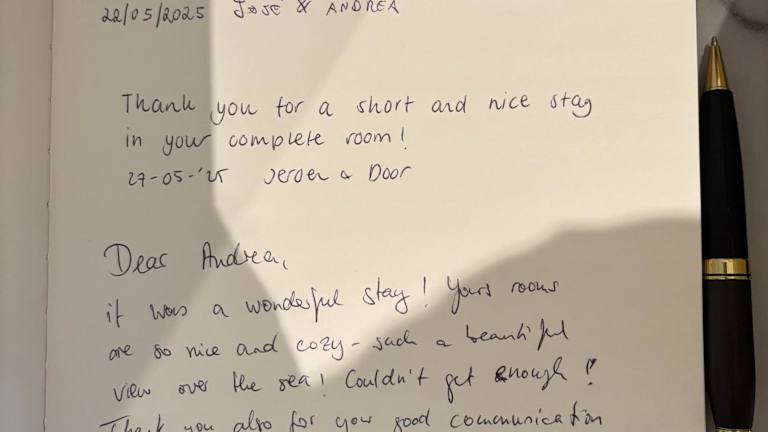 22/05/2025 JOSÉ & ANDREA
Thank you for a short and nice stay
in your complete room!
27-05-'25 Jeroen & Door
Dear Andrea,
it was a wonderful stay! Yours rooms
are so nice and cozy - such a beautiful
view over the sea! Couldn't get enough!
Thank you also for your good communication